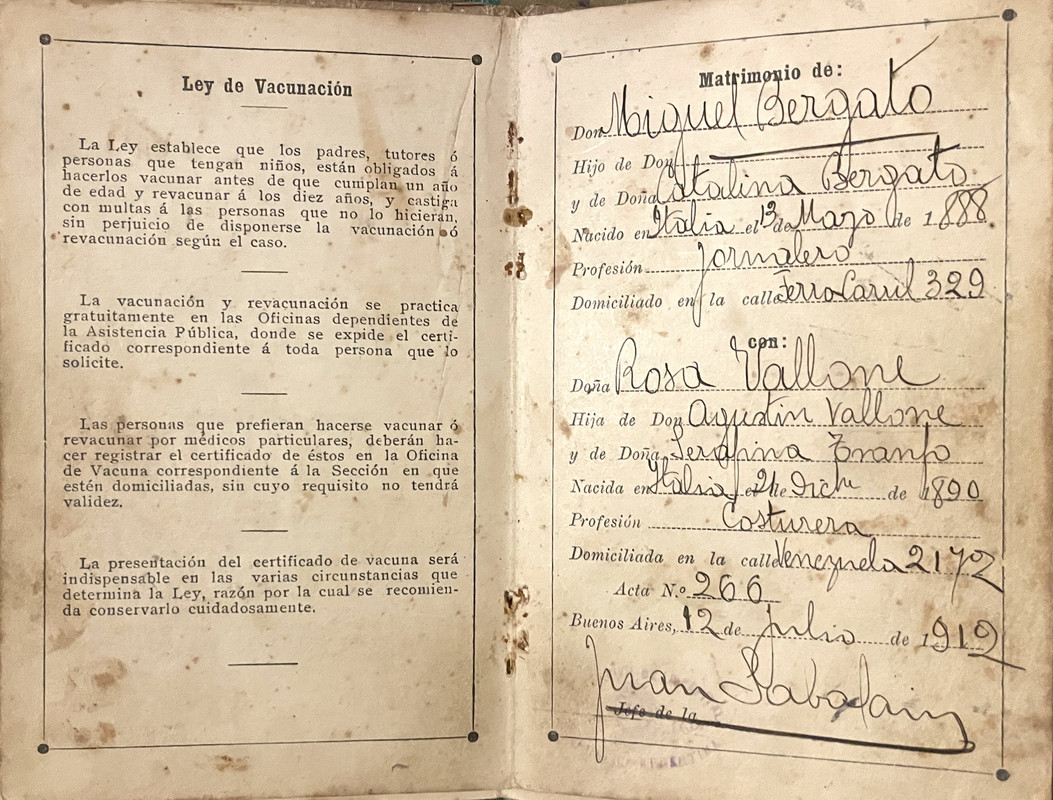 Ley de Vacunación
La Ley establece que los padres, tutores ó
personas que tengan niños, están obligados á
hacerlos vacunar antes de que cumplan un año
de edad y revacunar á los diez años, y castiga
con multas á las personas que no lo hicieran,
sin perjuicio de disponerse la vacunación ó
revacunación según el caso.
La vacunación y revacunación se practica
gratuitamente en las Oficinas dependientes de
la Asistencia Pública, donde se expide el certi-
ficado correspondiente á toda persona que lo
solicite.
Las personas que prefieran hacerse vacunar ó
revacunar por médicos particulares, deberán ha-
cer registrar el certificado de éstos en la Oficina
de Vacuna correspondiente á la Sección en que
estén domiciliadas, sin cuyo requisito no tendrá
validez.
La presentación del certificado de vacuna será
indispensable en las varias circunstancias que
determina la Ley, razón por la cual se recomien-
da conservarlo cuidadosamente.
Matrimonio de:
Don Miguel Bergato
Hijo de Don
y de Doña Catalina Bergato
Nacido en Italia el 13 de Mazo de 1.888
Profesión Jornalero
Domiciliado en la calle Ferro Carril 329
con:
Doña Rosa Vallone
Hija de Don Agustin Vallone
y de Doña Serafina Tranfo
Nacida en Italia el 21 de Dicbe de 1890
Profesión Costurera
Domiciliada en la calle Venezuela 2172
Acta N.º 266
Buenos Aires, 12 de Julio de 1912
Juan
Jefe de la